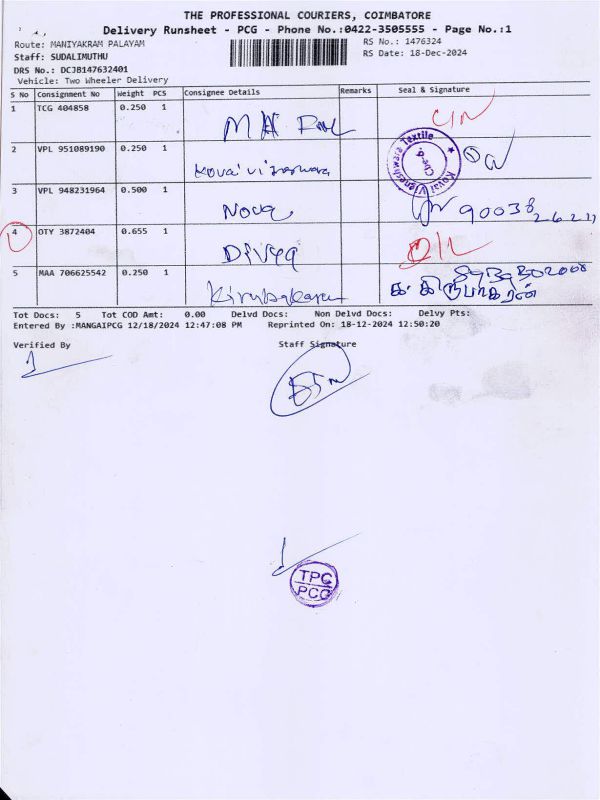 THE PROFESSIONAL COURIERS, COIMBATORE
Delivery Runsheet - PCG - Phone No.:0422-3505555 - Page No.:1
Route: MANIYAKRAM PALAYAM
RS No.: 1476324
Staff: SUDALIMUTHU
RS Date: 18-Dec-2024
DRS No.: DCJB147632401
Vehicle: Two Wheeler Delivery
S No Consignment No Weight PCS Consignee Details Remarks Seal & Signature
1 TCG 404858 0.250 1
2 VPL 951089190 0.250 1 Kovai Vigneshwara
Kovai Vigneshwara Textile
Cbe-6.
3 VPL 948231964 0.500 1 Nova
4 OTY 3872404 0.655 1 Divya
5 MAA 706625542 0.250 1 Kirubakaran
க. கிருபாகரன்
Tot Docs: 5 Tot COD Amt: 0.00 Delvd Docs: Non Delvd Docs: Delvy Pts:
Entered By :MANGAIPCG 12/18/2024 12:47:08 PM Reprinted On: 18-12-2024 12:50:20
Verified By Staff Signature
TPC
PCG